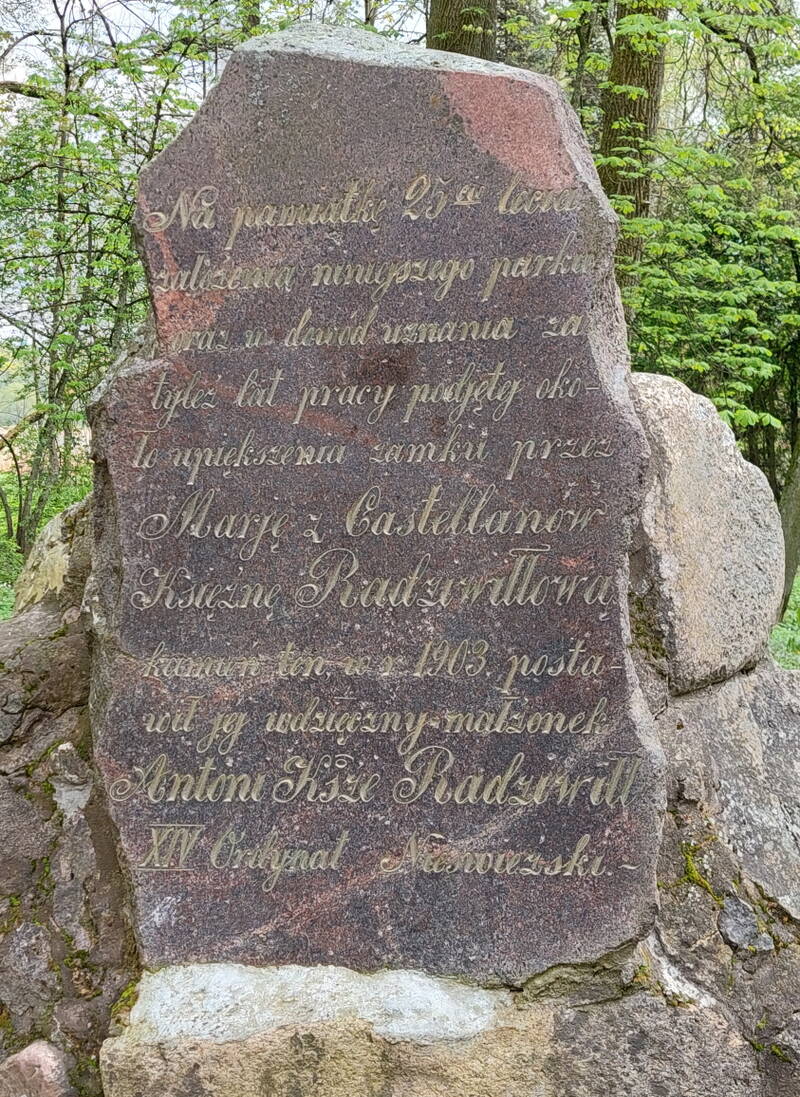 Na pamiątkę 25cio lecia
założenia niniejszego parku
oraz w dowód uznania za
tyleż lat pracy podjętej oko-
ło upiększenia zamku przez
Marję z Castellanów
Księżnę Radziwiłłową
kamień ten, w r. 1903. posta-
wił jej wdzięczny małżonek
Antoni Ksże Radziwiłł
XIV Ordynat Nieświeżski.~